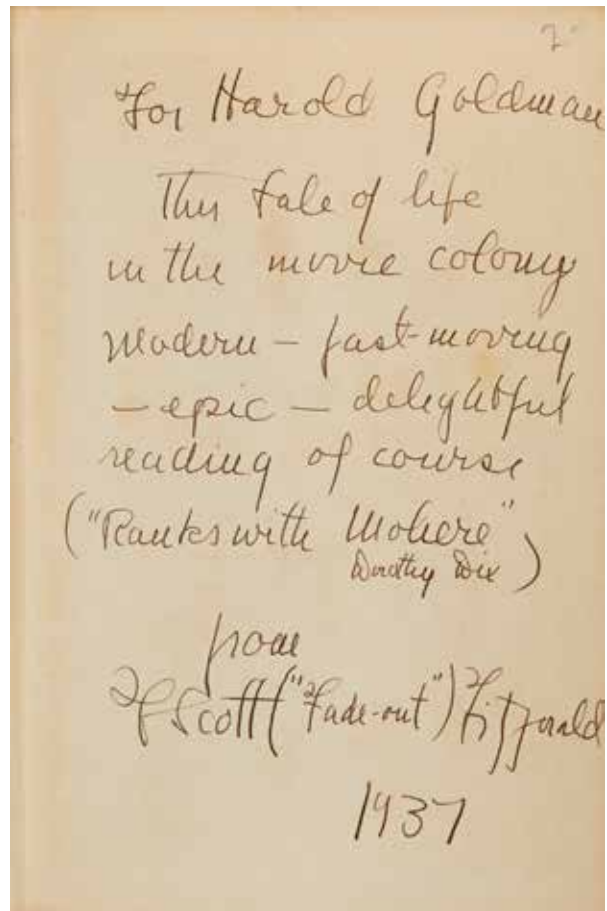 For Harold Goldman
This tale of life
in the movie colony
modern – fast-moving
– epic – delightful
reading of course
("Ranks with Moliere"
Dorothy Dix)
from
F Scott ("Fade-out") Fitzgerald
1937